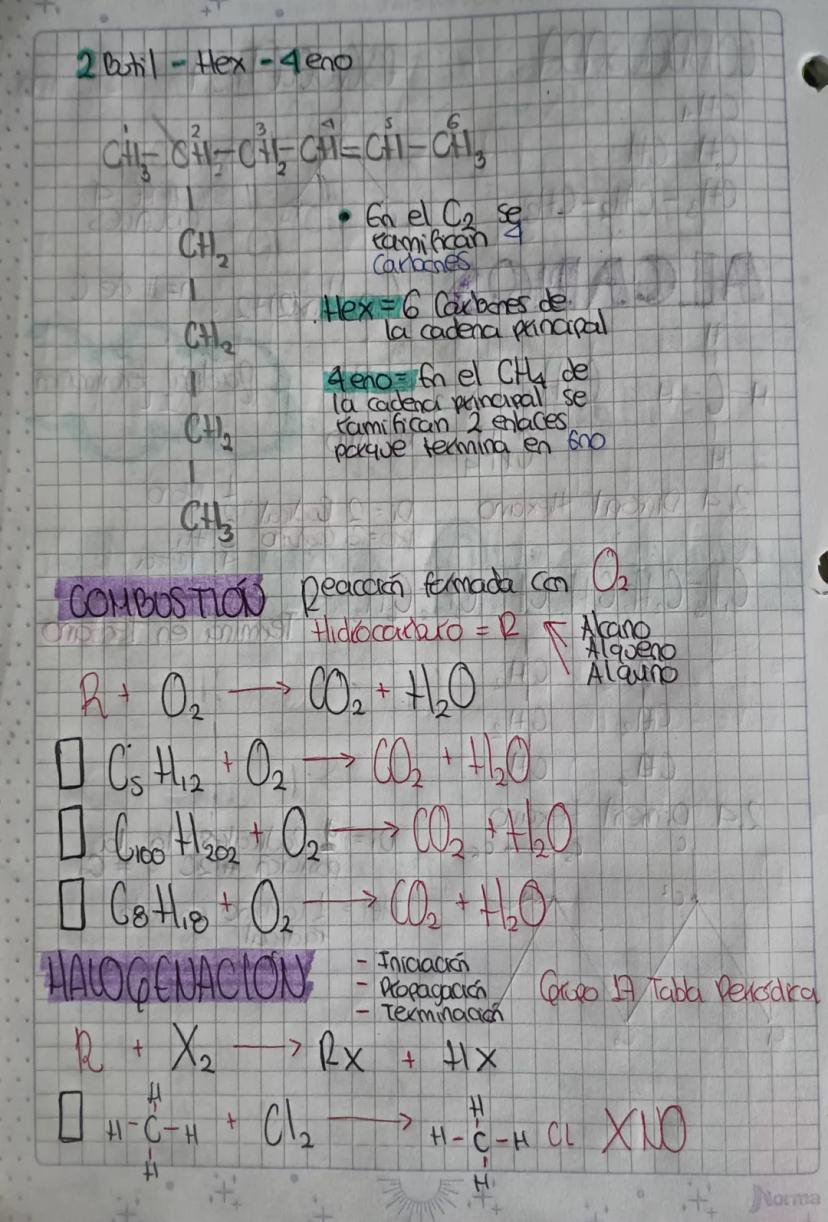 2 Butil - Hex - 4 eno
1 2 3 4 5 6
CH3 - CH2 - CH2 - CH = CH - CH3
CH2
CH2
CH2
CH3
• En el C2 se
ramifican 4
Carbones
Hex = 6 Carbones de
la cadena principal
4 eno = En el CH4 de
la cadena principal se
ramifican 2 enlaces
porque termina en eno
COMBUSTIÓN Reacción formada con O2
Hidrocarburo = R
Alcano
Alqueno
Alquino
R + O2 → CO2 + H2O
C5 H12 + O2 → CO2 + H2O
C100 H202 + O2 → CO2 + H2O
C8 H18 + O2 → CO2 + H2O
HALOGENACIÓN
- Iniciación
- Propagación
- Terminación
Grupo 17 Tabla Periódica
R + X2 → RX + HX
H H
H - C - H + Cl2 → H - C - H Cl X NO
H H
Norma